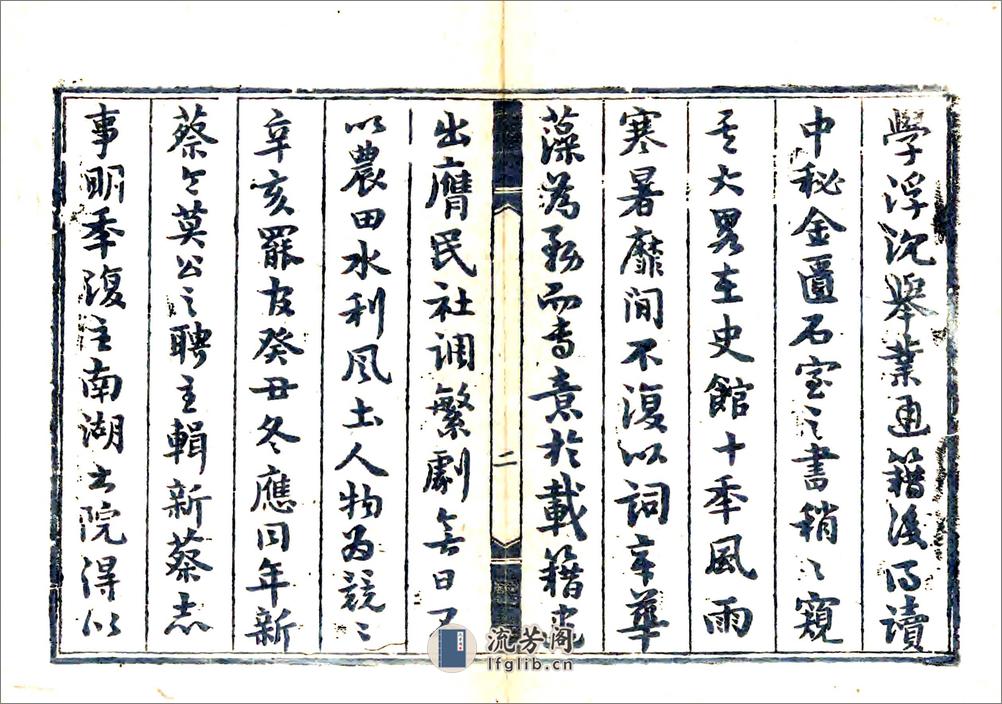 學浮沉舉業通籍後得讀
中秘金匱石室之書稍々窺
其大畧在史館十年風雨
寒暑靡间不復以词章華
藻為務而專意於載籍
出膺民社调繁劇無日不
以農田水利风土人物為競々
辛亥罷官癸丑冬應同年新
蔡令莫公之聘主輯新蔡志
事明季復主南湖书院得以
二
流芳阁
lfglib.cn